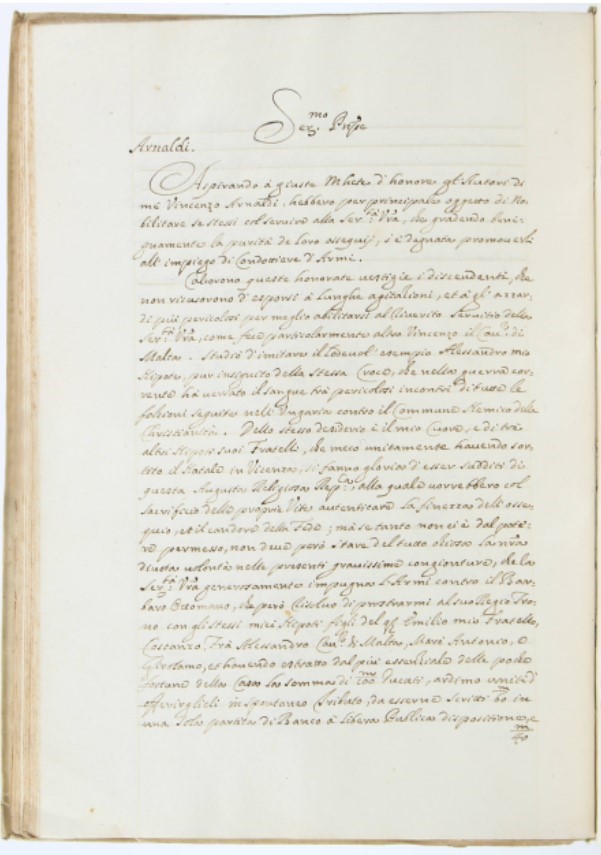 Ser.mo Prnpe
Arnaldi.
Aspirando à giuste Mhete d'honore gl'Autori di
me Vincenzo Arnaldi, hebbero per principale oggetto di No-
bilitare se stessi col servire alla Ser.tà Vrà, che gradendo beni-
gnamente la purità de loro ossequij, s'è degnata promoverli
all'impiego di Condottiere d'Armi.
Calcorono queste honorate vestigie i discendenti, che
non ricusorono d'esporsi à lunghe agitationi, et à gl'azzar-
di più pericolosi per meglio abilitarsi al riverito servitio della
Ser.tà Vrà, come fece particolarmente altro Vincenzo il Cau.r di
Malta. Studiò d'imitare il lodevol'esempio Alessandro mio
Nipote, pur insignito della stessa Croce, che nella guerra cor-
rente hà versato il sangue trà pericolosi incontri di tutte le
fattioni seguite nell'Ungaria contro il Commune Nemico della
Christianità. Dello stesso desiderio è il mio Cuore, e di trè
altri Nipoti suoi Fratelli, che meco unitamente havendo sor-
tito il Natale in Vicenza, si fanno gloria d'esser sudditi di
questa Augusta Religiosa Rep.ca, alla quale vorrebbero col
sacrificio delle proprie Vite autenticare la finezza dell'osse-
quio, et il candore della Fede; mà se tanto non ci è dal pote-
re permesso, non deve però stare del tutto otiosa la nrà
divota volontà nelle presenti gravissime congionture, che la
Ser.tà Vrà generosamente impugna l'Armi contro il Bar-
baro Ottomano, che però risoluo di prostrarmi al suo Regio Tro-
no con gli stessi miei Nipoti figli del q.m Emilio mio Fratello,
Costanzo, Frà Alessandro Cau.r di Malta, Marc'Antonio, e
Girolamo, et havendo estratto dal più essentiale delle poche
fortune della Casa la somma di ducati, ardimo umiled.
offerirglieli in spontaneo tributo, da esserne scritti in
una sola partita di Banco à libera Publica dispositione, e